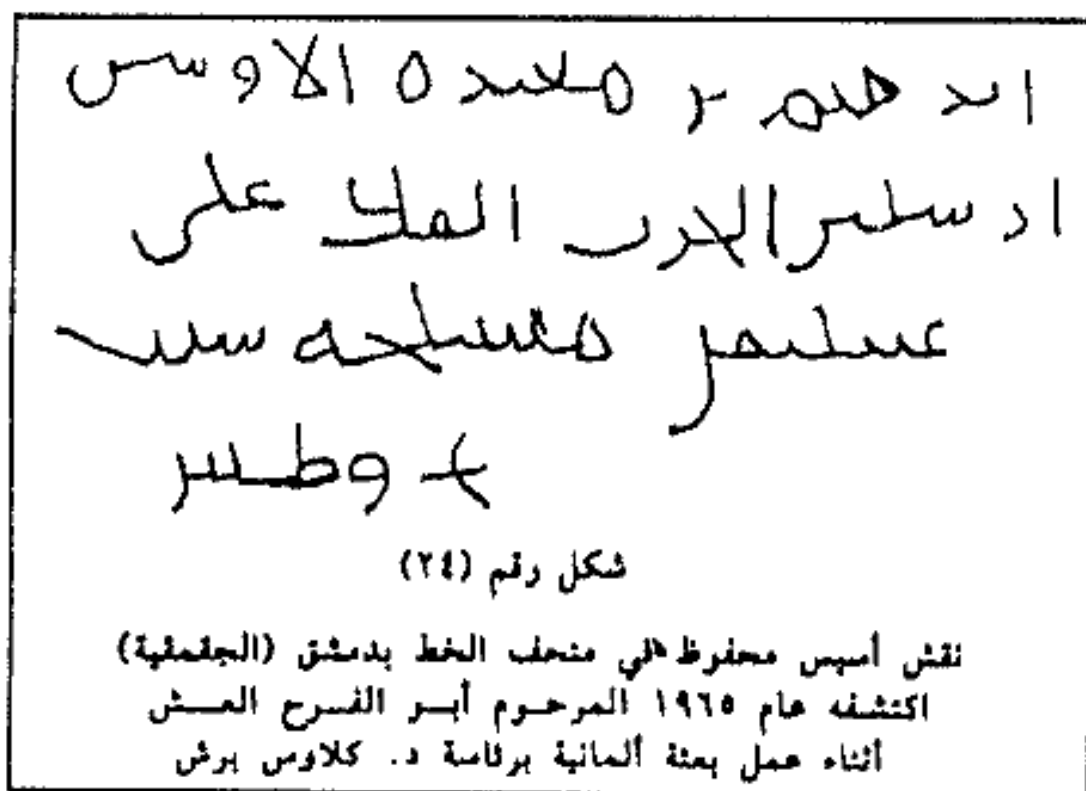 ابرهيم بن مغيره الاوسي
ارسلني الحرث الملك على
مسلحه سنت
شكل رقم (٢٤)
نقش أسيس محفوظ في متحف الخط بدمشق (الجقمقية)
اكتشفه عام ١٩٦٥ المرحوم أبو الفرج العش
أثناء عمل بعثة ألمانية برئاسة د. كلاوس برش